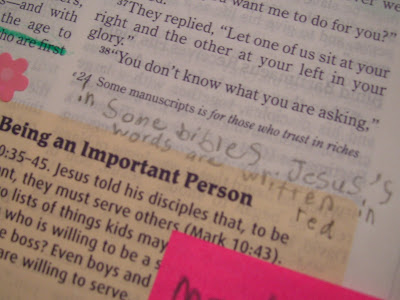 s—and with
the age to
who are first
want me to do for you?"
37They replied, "Let one of us sit at your
right and the other at your left in your
glory."
38"You don't know what you are asking,"
24 Some manuscripts is for those who trust in riches
in some bibles Jesus's
words are written in
red
Being an Important Person
0:35-45. Jesus told his disciples that, to be
nt, they must serve others (Mark 10:43).
to lists of things kids may
who is willing to be a s
e boss? Even boys and
are willing to serve